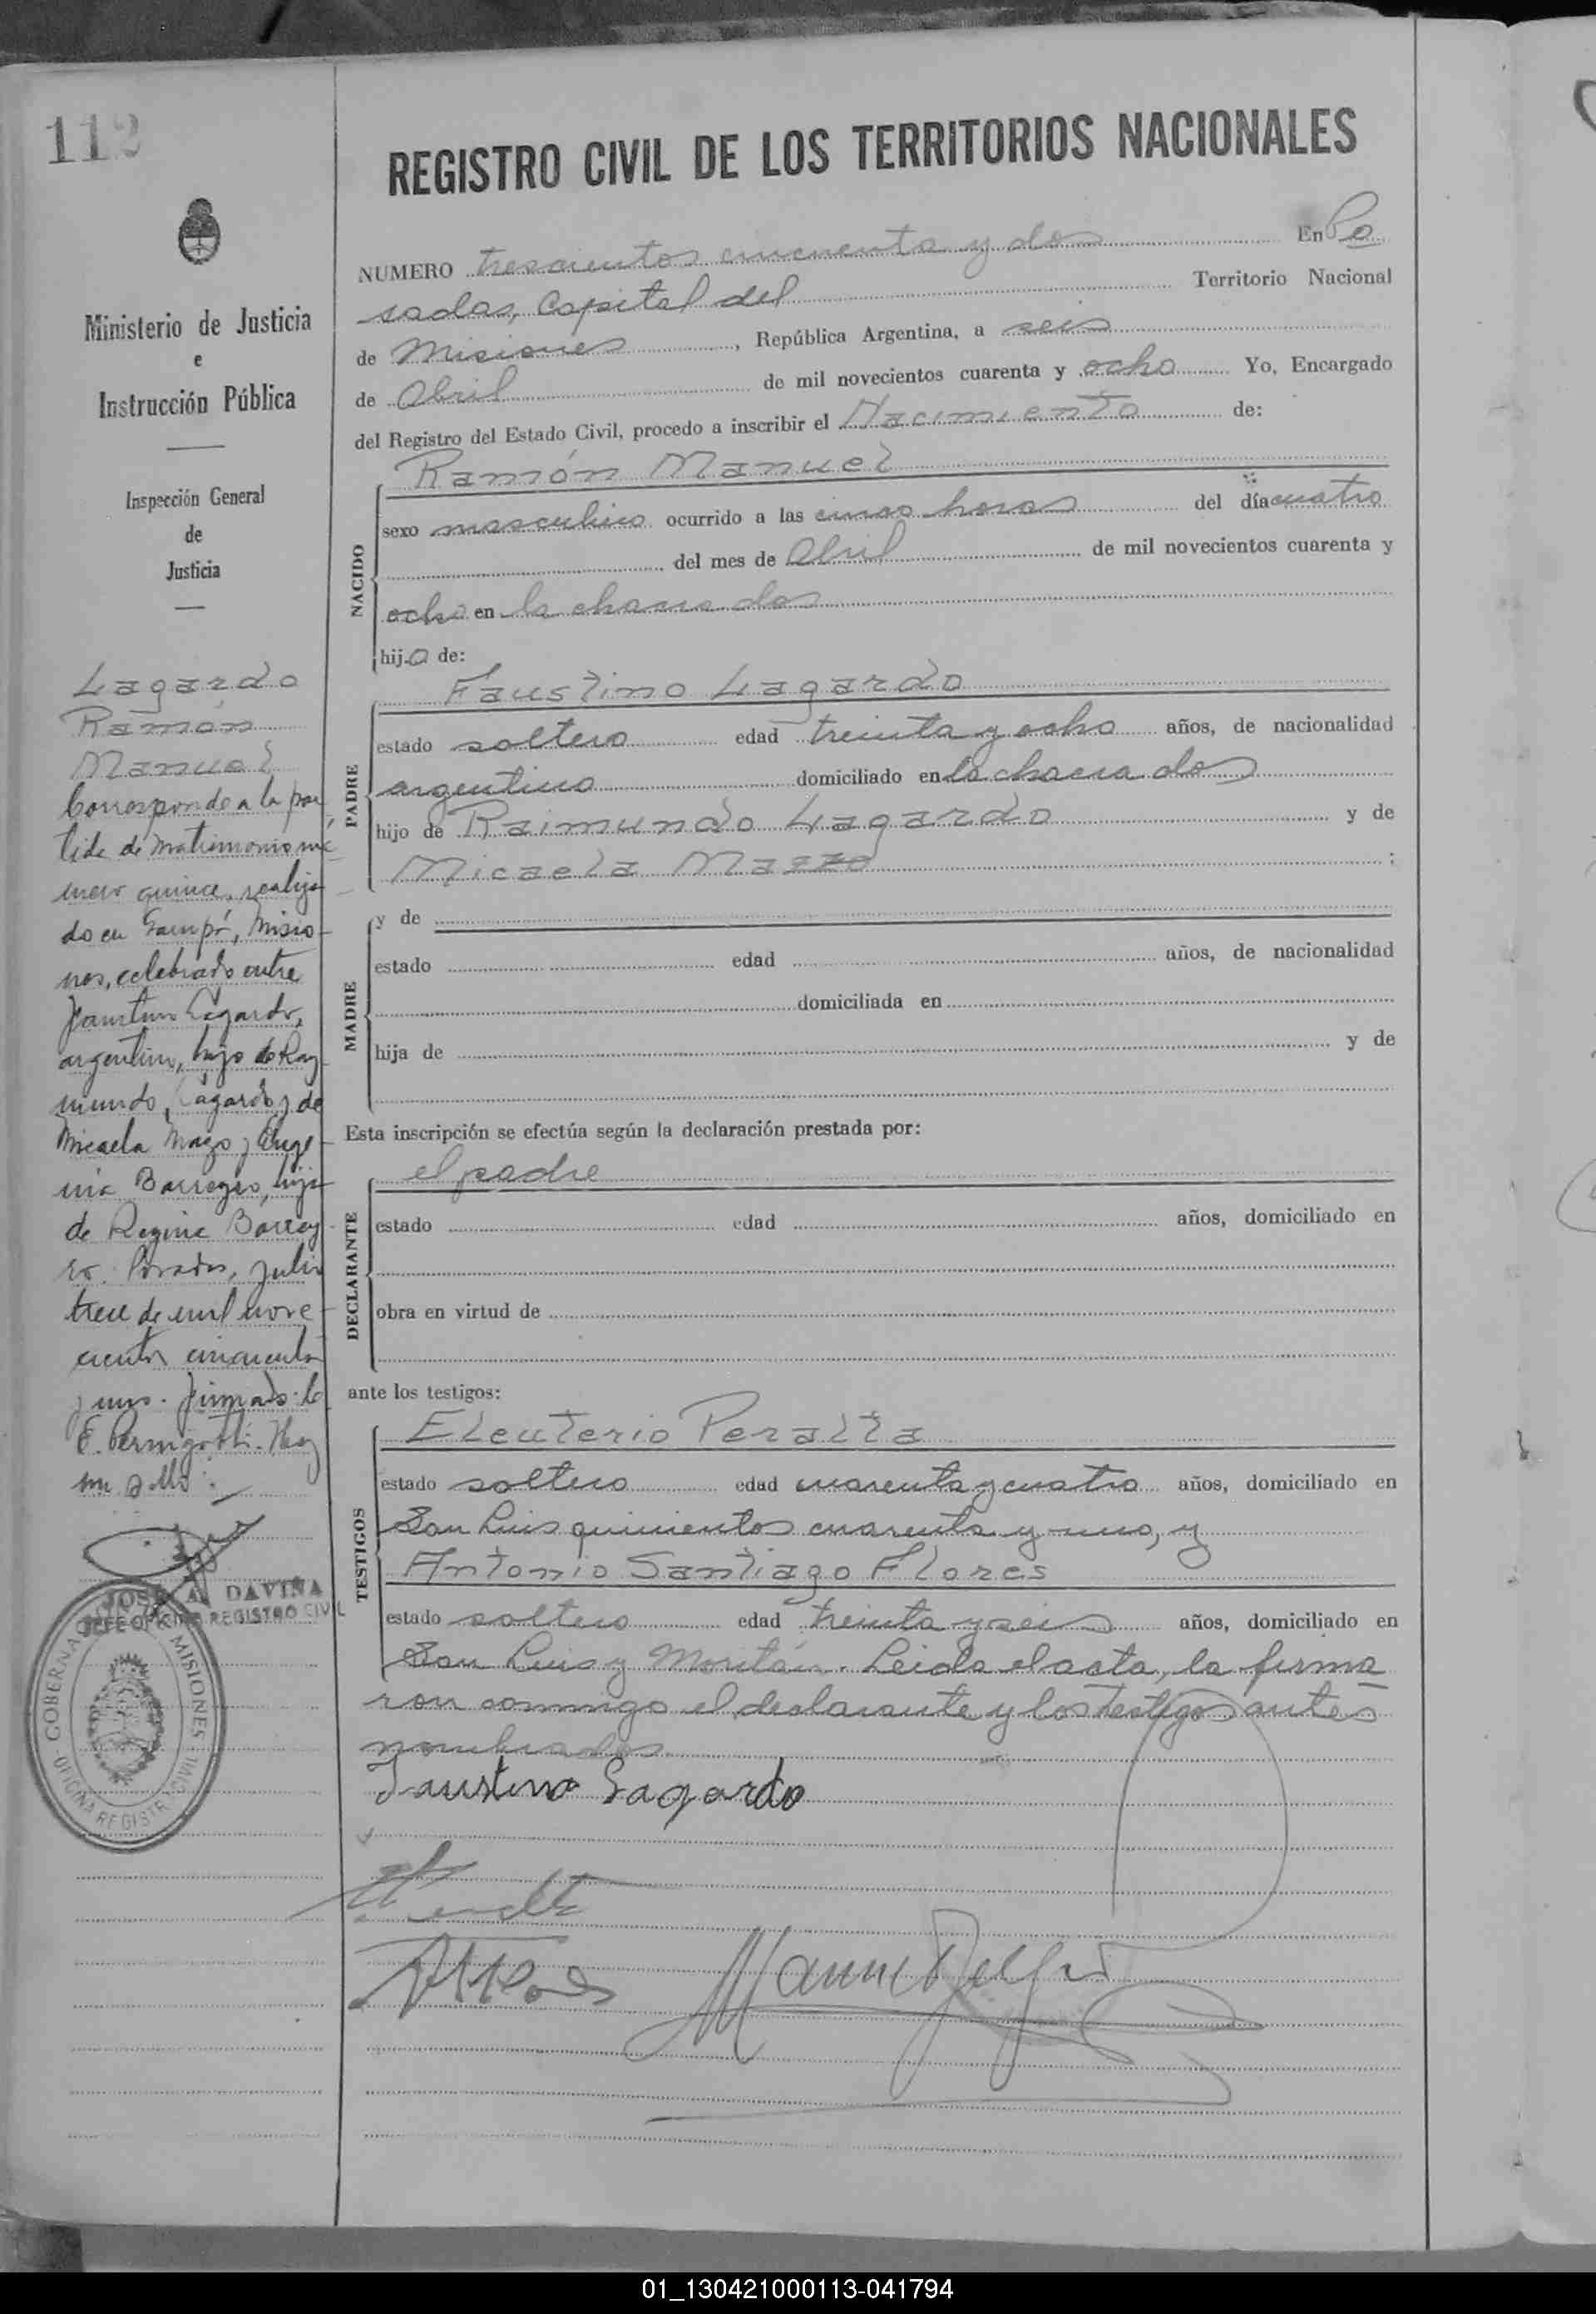 112
REGISTRO CIVIL DE LOS TERRITORIOS NACIONALES
NUMERO trescientos cincuenta y dos En Po
sadas, Capital del Territorio Nacional
de Misiones, República Argentina, a seis
de Abril de mil novecientos cuarenta y ocho Yo, Encargado
del Registro del Estado Civil, procedo a inscribir el Nacimiento de:
NACIDO
Ramón Manuel
sexo masculino ocurrido a las cinco horas del día cuatro
del mes de Abril de mil novecientos cuarenta y
ocho en la chacra dos
hijo de:
PADRE
Faustino Lagardo
estado soltero edad treinta y ocho años, de nacionalidad
argentino domiciliado en la chacra dos
hijo de Raimundo Lagardo y de
Micaela Mazzo;
MADRE
y de
estado edad años, de nacionalidad
domiciliada en
hija de y de
Esta inscripción se efectúa según la declaración prestada por:
DECLARANTE
el padre
estado edad años, domiciliado en
obra en virtud de
ante los testigos:
TESTIGOS
Eleuterio Peralta
estado soltero edad cuarenta y cuatro años, domiciliado en
San Luis quinientos cuarenta y uno, y
Antonio Santiago Flores
estado soltero edad treinta y seis años, domiciliado en
San Luis y Moritán. Leida el acta, la firma
ron conmigo el declarante y los testigos antes
nombrados
Faustino Lagardo
Ministerio de Justicia
e
Instrucción Pública
Inspección General
de
Justicia
Lagardo
Ramón
Manuel
Corresponde a la par
tida de matrimonio nú
mero quince, realiza
do en Garupá, Misio
nes, celebrado entre
Faustino Lagardo,
argentino, hijo de Ray
mundo Lagardo y de
Micaela Mazo y Euge
nia Barreyro, hija
de Regina Barrey
ro. Posadas, Julio
trece de mil nove
cientos cincuenta
y uno. Firmado:
E. Pernigotti. Hay
un sello.
JOSE A. DAVIÑA
JEFE OFICINA REGISTRO CIVIL
GOBERNACION MISIONES
OFICINA REGISTRO CIVIL
01_130421000113-041794